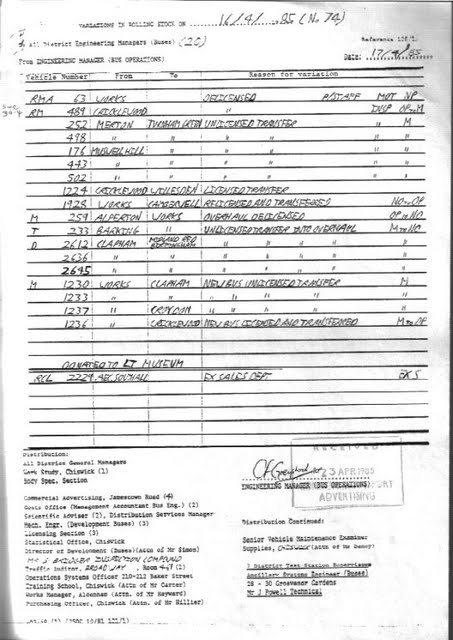 VARIATIONS IN ROLLING STOCK ON 16/4/85 (No 74)
All District Engineering Managers (Buses) (20)
Reference
From ENGINEERING MANAGER (BUS OPERATIONS) Date: 17/4/85
Vehicle Number From To Reason for variation
RMA 63 WORKS DELICENSED P/STAFF MOT NP
RM 489 CRICKLEWOOD " DISP OP to M
252 MERTON TURNHAM GREEN UNLICENSED TRANSFER " M
498 " " " " " "
176 MUSWELL HILL " " " " "
443 " " " " " "
502 " " " " " "
1224 CRICKLEWOOD WILLESDEN LICENSED TRANSFER
1928 WORKS CAMBERWELL RELICENSED AND TRANSFERRED NO to OP
M 259 ALPERTON WORKS OVERHAUL DELICENSED OP to NO
T 233 BARKING " UNLICENSED TRANSFER INTO OVERHAUL M to NO
D 2612 CLAPHAM MIDLAND RED BIRMINGHAM " " " "
2636 " " " " " "
2645 " " " " " "
M 1230 WORKS CLAPHAM NEW BUS UNLICENSED TRANSFER M
1233 " " " " " " "
1237 " CROYDON " " " " "
1236 " CRICKLEWOOD NEW BUS LICENSED AND TRANSFERRED M to OP
DONATED TO LT MUSEUM
RCL 2229 AEC SOUTHALL EX SALES DEPT EX S
Distribution:
All District General Managers
Work Study, Chiswick (1)
Body Spec. Section
RECEIVED
23 APR 1985
ADVERTISING
ENGINEERING MANAGER (BUS OPERATIONS)
Commercial Advertising, Jamestown Road (4)
Costs Office (Management Accountant Bus Eng.) (2)
Scientific Adviser (2), Distribution Services Manager
Mech. Engr. (Development Buses) (3)
Licensing Section (3)
Statistical Office, Chiswick
Director of Development (Buses)(Attn of Mr Simon)
INSPECTION COMPOUND
Traffic Indicator, BROADWAY, Room 447 (2)
Operations Systems Officer 210-212 Baker Street
Training School, Chiswick (Attn of Mr Carter)
Works Manager, Aldenham (Attn. of Mr Hayward)
Purchasing Officer, Chiswick (Attn. of Mr Hillier)
Distribution Continued:
Senior Vehicle Maintenance Examiner
Supplies, CHISWICK (Attn of Mr Denny)
7 District Test Station Supervisors
Ancillary Systems Engineer (Buses)
28 - 30 Grosvenor Gardens
Mr J Powell Technical